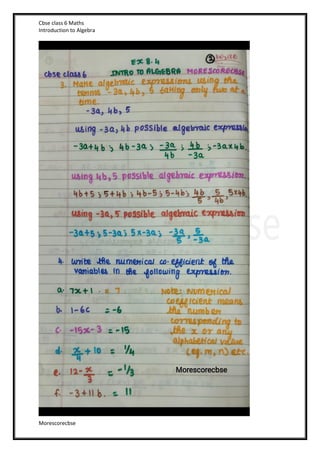 Cbse class 6 Maths
Introduction to Algebra
Ex 8.4
cbse class 6 INTRO TO ALGEBRA MORESCORECBSE
3. Make algebraic expressions using the
terms -3a, 4b, 5 taking only two at a
time.
-3a, 4b, 5
using -3a, 4b possible algebraic expression
-3a+4b ; 4b-3a ; -3a/4b ; 4b/-3a ; -3a×4b.
using 4b, 5 possible algebraic expression.
4b+5 ; 5+4b ; 4b-5 ; 5-4b ; 4b/5 ; 5/4b ; 5×4b.
using -3a, 5 possible algebraic expression
-3a+5 ; 5-3a ; 5×-3a ; -3a/5 , 5/-3a
4. Write the numerical co-efficient of the
variables in the following expression.
a. 7x+1 . = 7
b. 1-6c = -6
c. -15x-3 = -15
d. x/4 + 10 = 1/4
e. 12 - x/3 = -1/3
f. -3+11b. = 11
Note: Numerical
coefficient means
the number
corresponding to
the x or any
alphabetical value
(eg. m, n) etc.
Morescorecbse
Morescorecbse